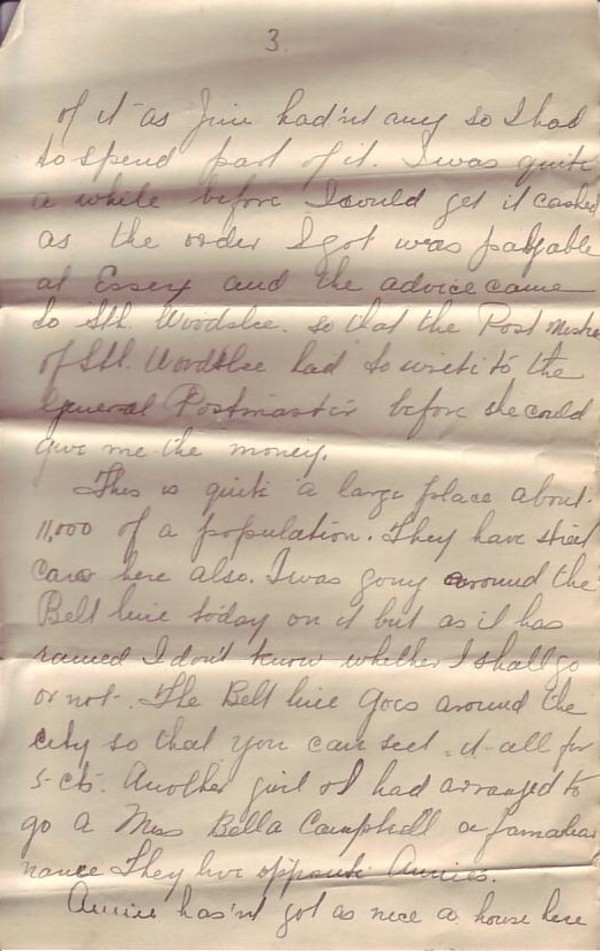 3
of it as Jim had'nt any so I had
to spend part of it. I was quite
a while before I could get it cashed
as the order I got was payable
at Essex and the advice came
to Sth. Woodslee. so that the Post Mistre
of Sth. Woodslee had to write to the
General Postmaster before she could
give me the money.
This is quite a large place about
11,000 of a population. They have street
cars here also. I was going around the
Belt line today on it but as it has
rained I don't know whether I shall go
or not. The Belt line goes around the
city so that you can see it all for
5 cts. Another girl & I had arranged to
go a Miss Bella Campbell a familiar
name They live opposite Annies.
Annie has'nt got as nice a house here